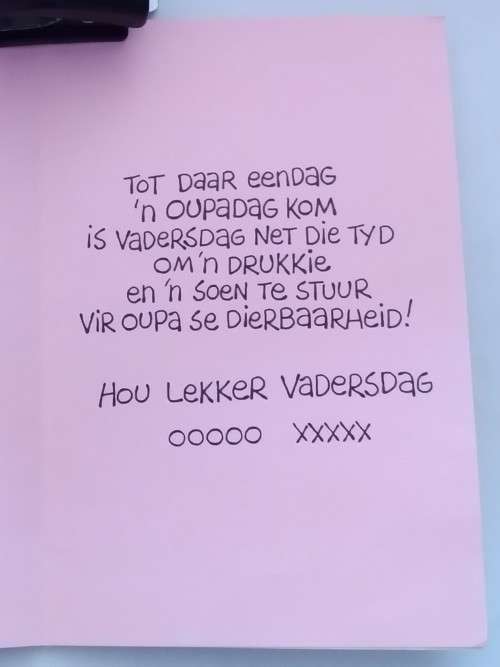 TOT DAAR EENDAG
'n OUPADAG KOM
is VADERSDAG NET Die TYD
OM 'n DRUKKie
en 'n SOEN TE STUUR
VIR OUPA SE DierBAARHEID!
HOU LEKKER VADERSDAG
OOOOO XXXXX